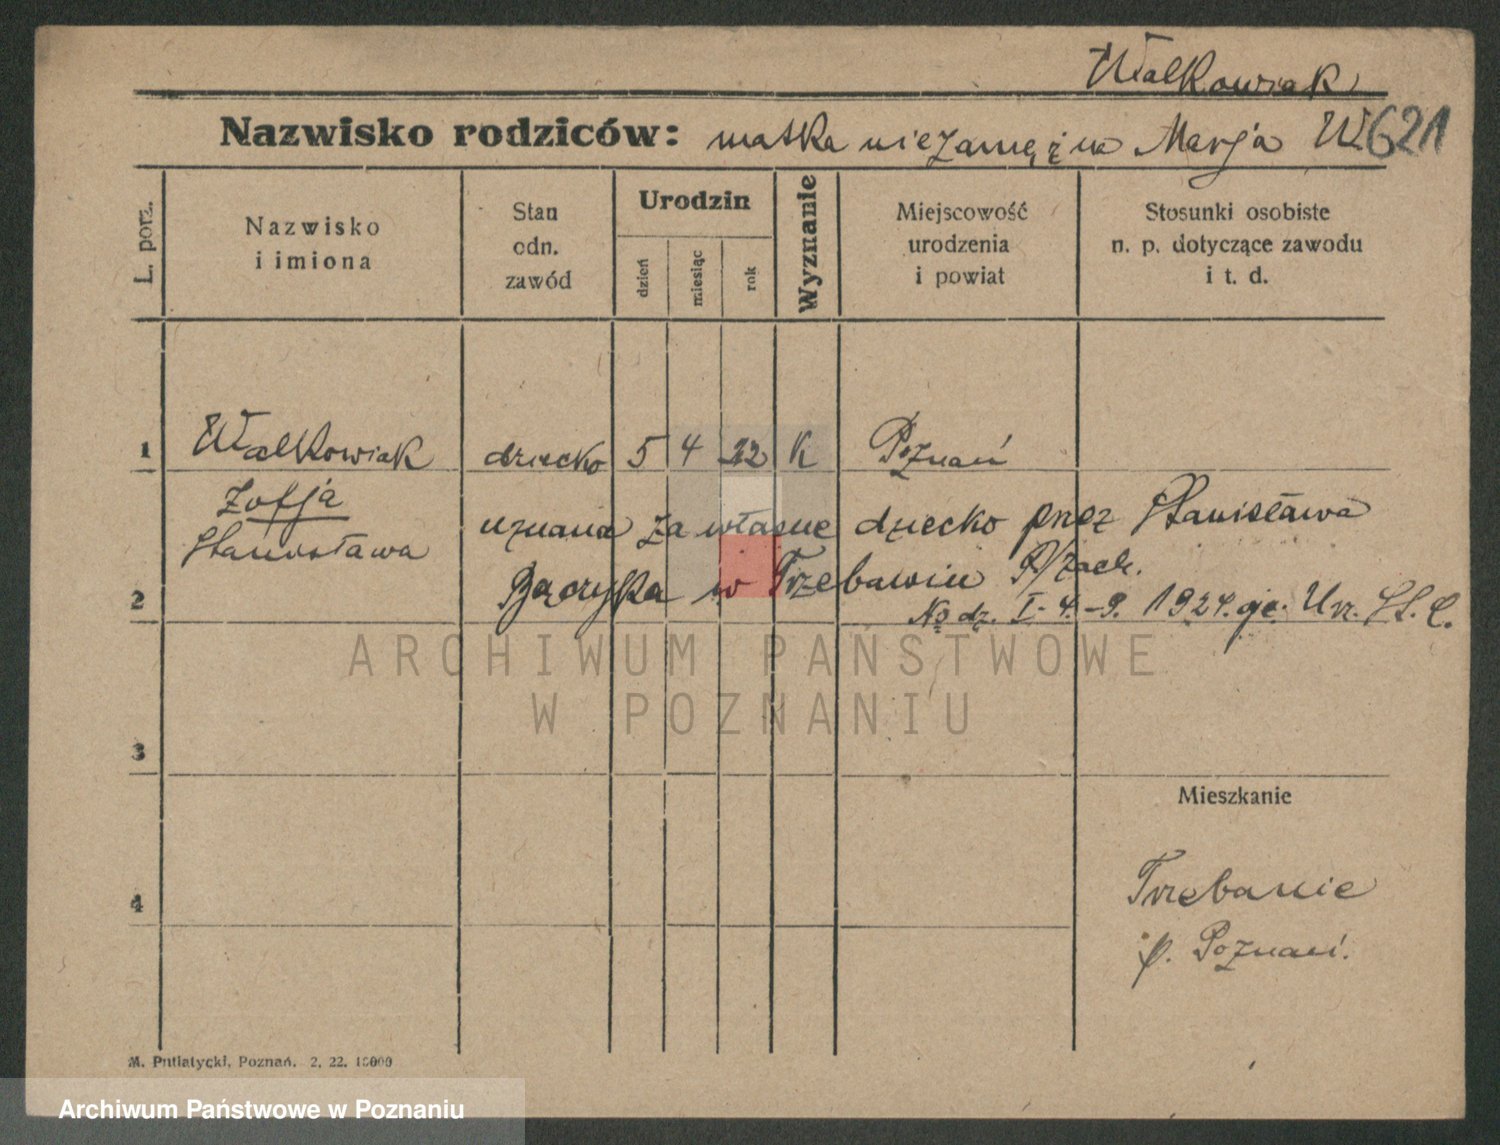 Walkowiak
Nazwisko rodziców: matka niezamężna Marja W621
L. porz.
Nazwisko
i imiona
Stan
odn.
zawód
Urodzin
dzień
miesiąc
rok
Wyznanie
Miejscowość
urodzenia
i powiat
Stosunki osobiste
n. p. dotyczące zawodu
i t. d.
1 Walkowiak dziecko 5 4 22 K Poznań
Zofja
Stanisława
uznana za własne dziecko przez Stanisława
w Trzebawiu P/zach.
2
No dz. I-4.-9. 1924. Urz. St. C.
ARCHIWUM PAŃSTWOWE
W POZNANIU
3
Mieszkanie
4
Trzebanie
p. Poznań.
M. Putiatycki, Poznań. 2. 22. 10000
Archiwum Państwowe w Poznaniu